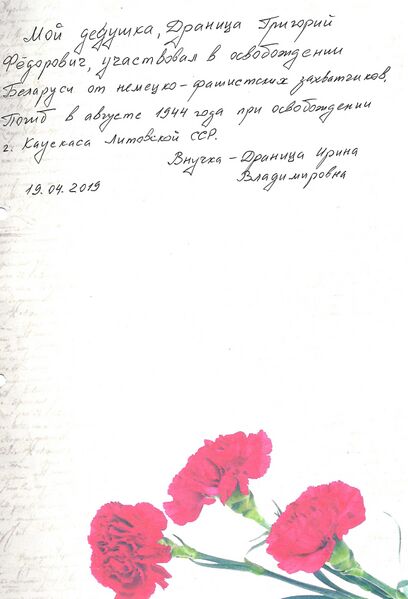 Мой дедушка, Драница Григорий
Фёдорович, участвовал в освобождении
Беларуси от немецко-фашистских захватчиков.
Погиб в августе 1944 года при освобождении
г. Каускаса Литовской ССР.
Внучка - Драница Ирина
Владимировна
19.04.2019